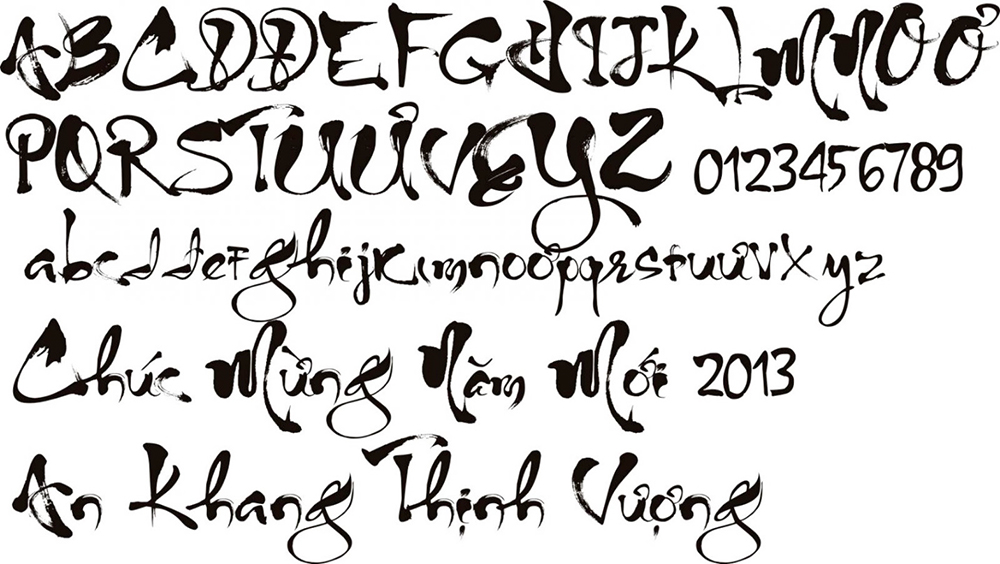 ABCDĐEFGHIJKLMNOƠ
PQRSTUƯVXYZ 0123456789
abcdđefghijklmnoơpqrstuưvxyz
Chúc Mừng Năm Mới 2013
An Khang Thịnh Vượng